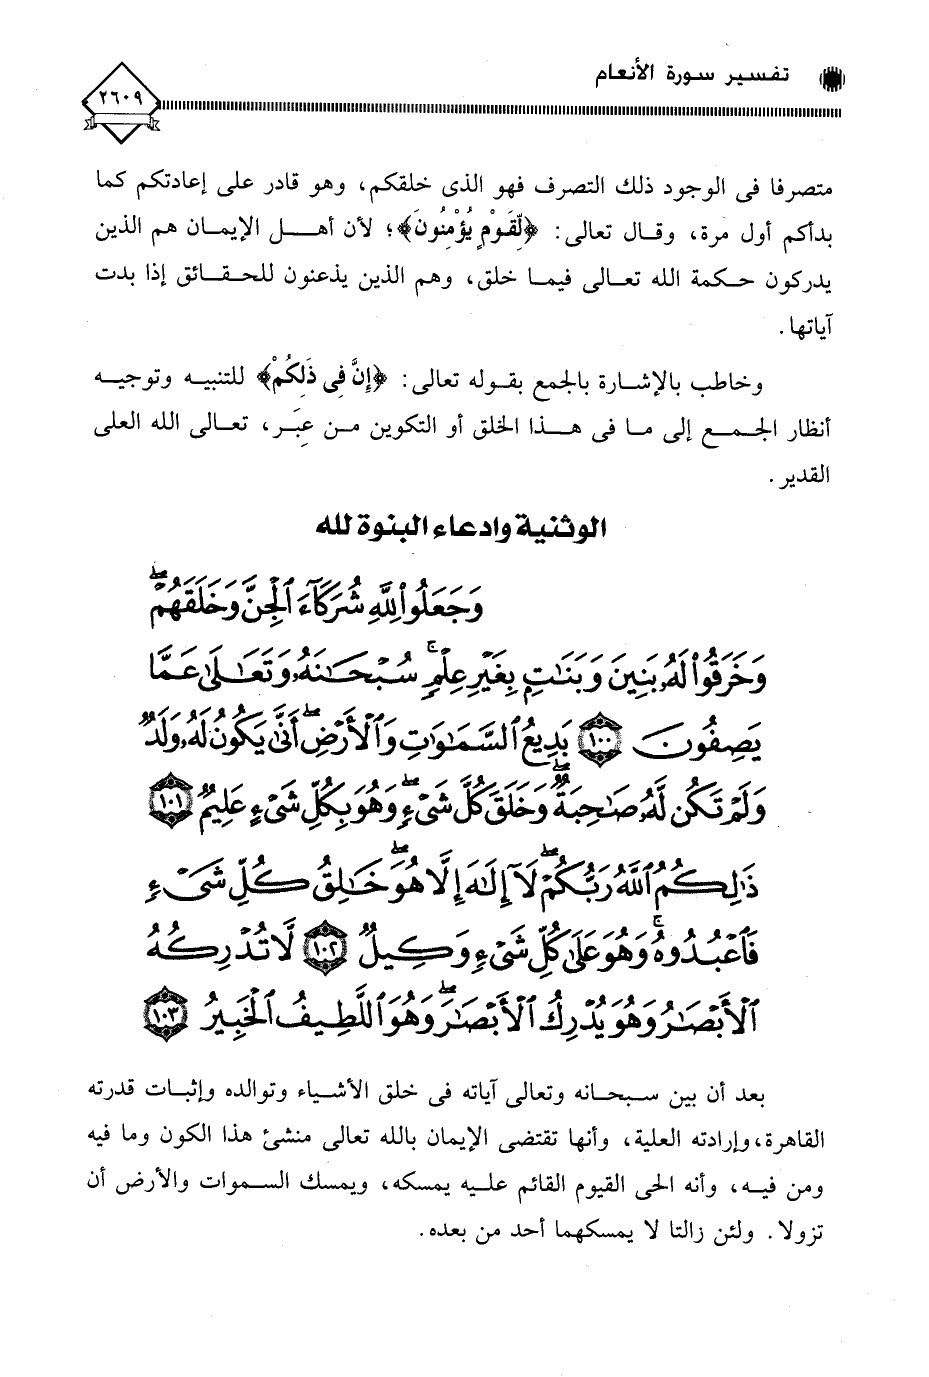 تفسير سورة الأنعام
٢٦٠٩
متصرفا فى الوجود ذلك التصرف فهو الذى خلقكم، وهو قادر على إعادتكم كما
بدأكم أول مرة، وقال تعالى: ﴿لِّقَوْمٍ يُؤْمِنُونَ﴾؛ لأن أهل الإيمان هم الذين
يدركون حكمة الله تعالى فيما خلق، وهم الذين يذعنون للحقائق إذا بدت
آياتها.
وخاطب بالإشارة بالجمع بقوله تعالى: ﴿إِنَّ فِي ذَلِكُمْ﴾ للتنبيه وتوجيه
أنظار الجمع إلى ما فى هذا الخلق أو التكوين من عِبَر، تعالى الله العلى
القدير.
الوثنية وادعاء البنوة لله
وَجَعَلُوا۟ لِلَّهِ شُرَكَآءَ ٱلْجِنَّ وَخَلَقَهُمْۖ
وَخَرَقُوا۟ لَهُۥ بَنِينَ وَبَنَٰتٍۭ بِغَيْرِ عِلْمٍۚ سُبْحَٰنَهُۥ وَتَعَٰلَىٰ عَمَّا
يَصِفُونَ ١٠٠ بَدِيعُ ٱلسَّمَٰوَٰتِ وَٱلْأَرْضِۖ أَنَّىٰ يَكُونُ لَهُۥ وَلَدٌ
وَلَمْ تَكُن لَّهُۥ صَٰحِبَةٌۖ وَخَلَقَ كُلَّ شَىْءٍۖ وَهُوَ بِكُلِّ شَىْءٍ عَلِيمٌ ١٠١
ذَٰلِكُمُ ٱللَّهُ رَبُّكُمْۖ لَآ إِلَٰهَ إِلَّا هُوَۖ خَٰلِقُ كُلِّ شَىْءٍ
فَٱعْبُدُوهُۚ وَهُوَ عَلَىٰ كُلِّ شَىْءٍ وَكِيلٌ ١٠٢ لَّا تُدْرِكُهُ
ٱلْأَبْصَٰرُ وَهُوَ يُدْرِكُ ٱلْأَبْصَٰرَۖ وَهُوَ ٱللَّطِيفُ ٱلْخَبِيرُ ١٠٣
بعد أن بين سبحانه وتعالى آياته فى خلق الأشياء وتوالده وإثبات قدرته
القاهرة، وإرادته العلية، وأنها تقتضى الإيمان بالله تعالى منشئ هذا الكون وما فيه
ومن فيه، وأنه الحى القيوم القائم عليه يمسكه، ويمسك السموات والأرض أن
تزولا. ولئن زالتا لا يمسكهما أحد من بعده.